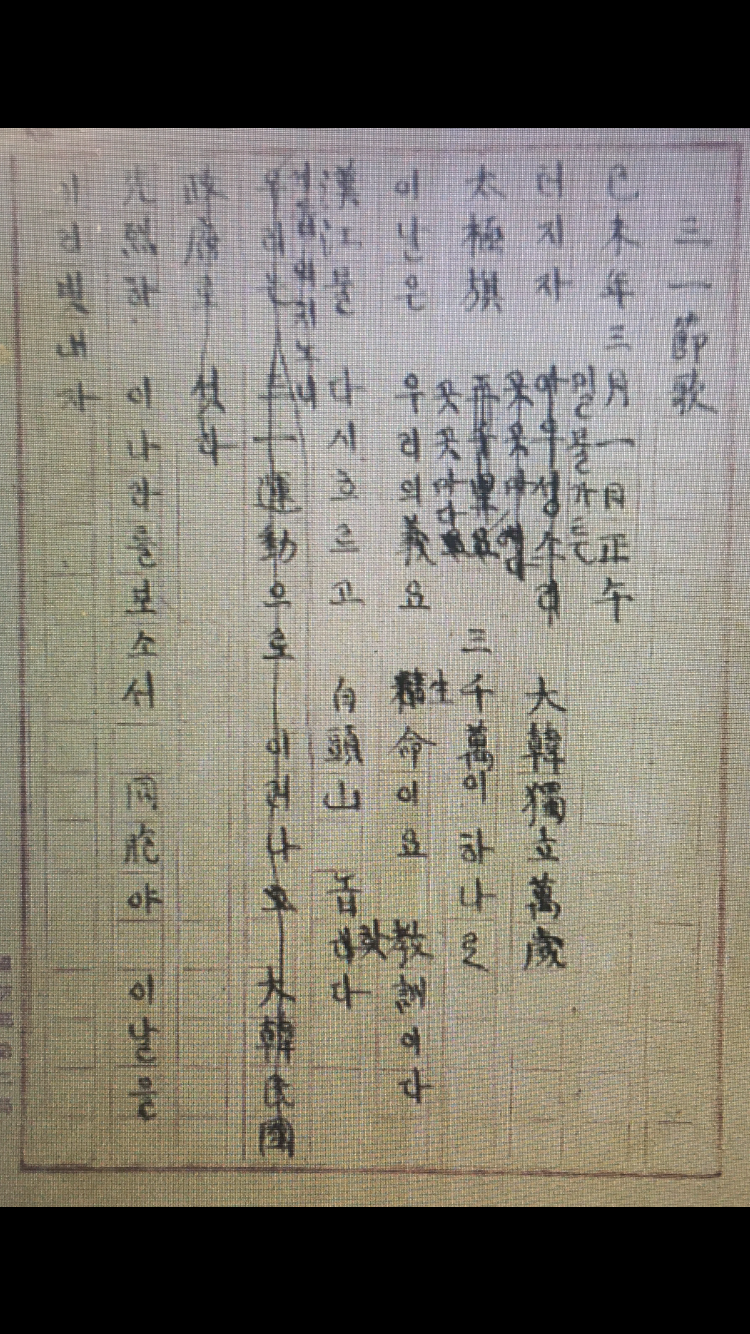 三一節歌
己未年三月一日正午
밀물가튼
터지자 아우성소리 大韓獨立萬歲
太極旗 三千萬이 하나로
곳곳마다
이날은 우리의義요 生命이요 敎訓이다
漢江물 다시흐르고 白頭山 놉핫다
우리는 三一運動으로 이러나고 大韓民國
政府로 섯다
先烈하 이나라를보소서 同胞야 이날을
기리빗내자